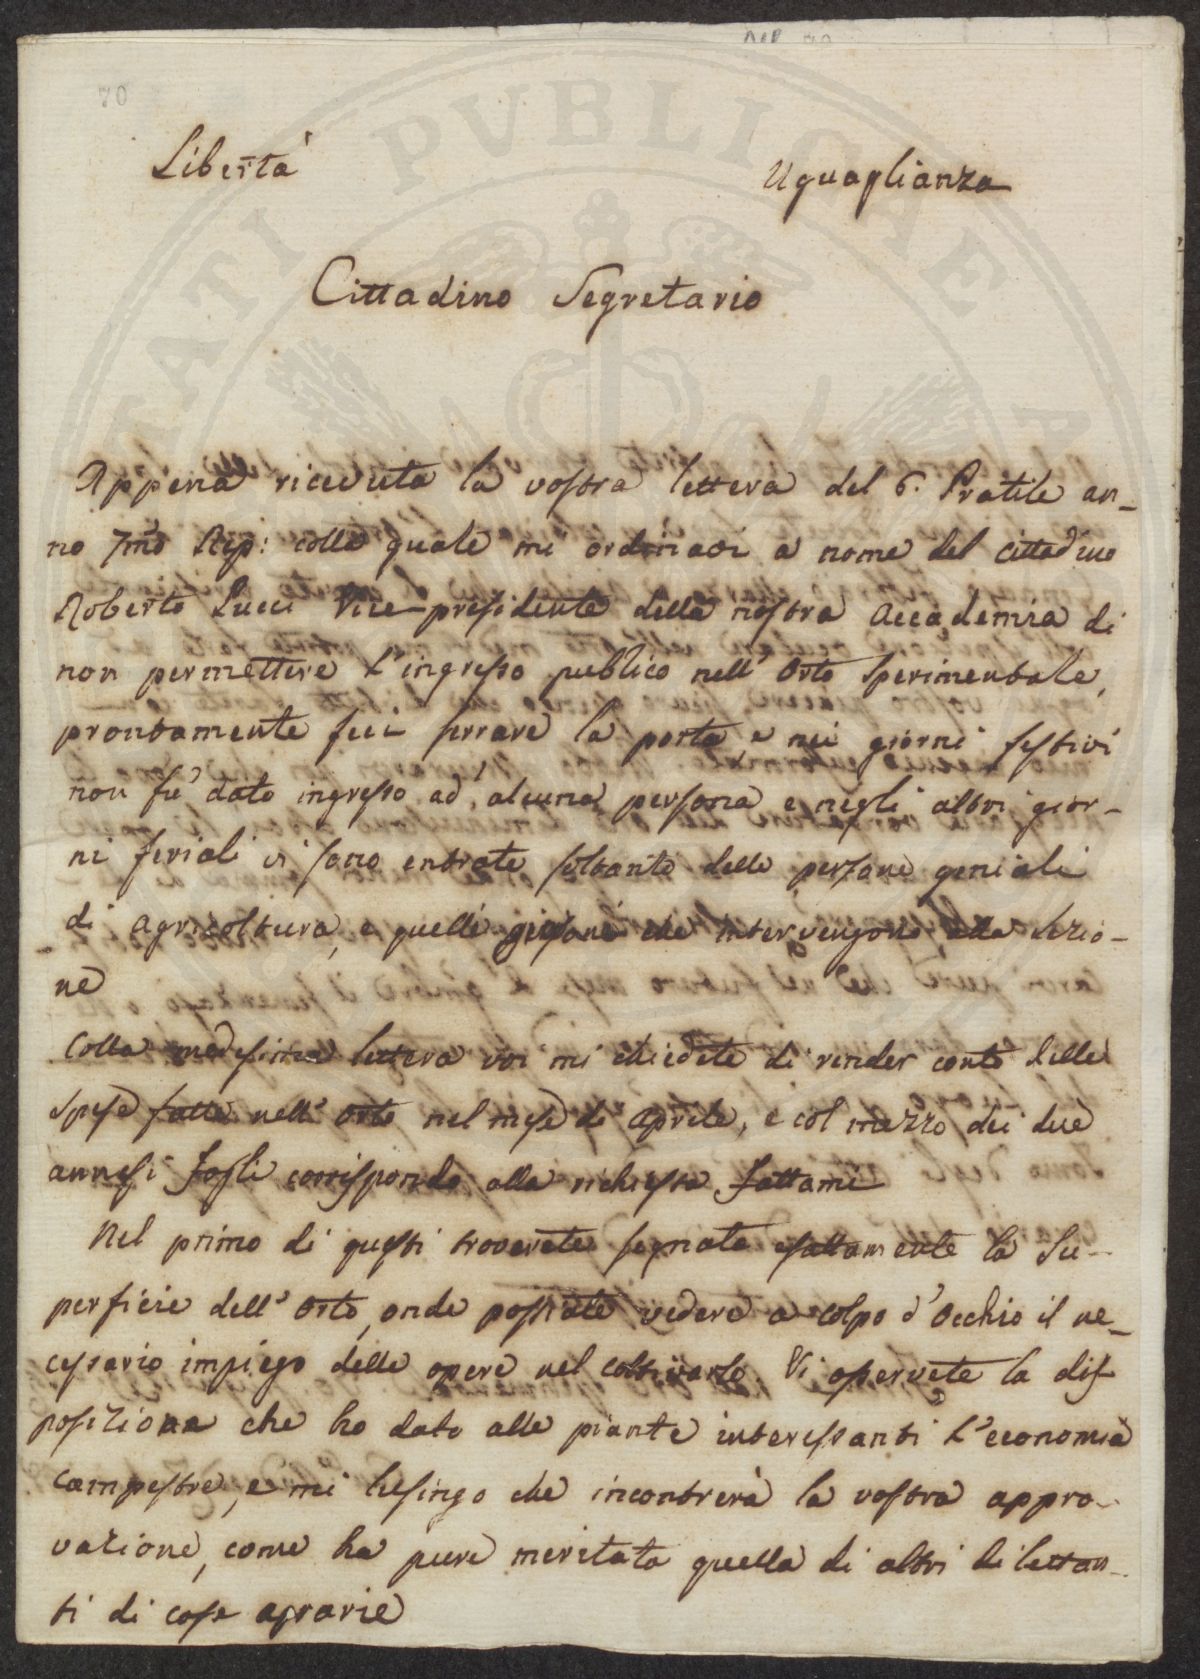 70
Libertà
Uguaglianza
Cittadino Segretario
Appena riceduta la vostra lettera del 6. Pratile an-
no 7mo Rep: colla quale mi ordinaci a nome del cittadino
Roberto Pucci Vice-presidente della nostra Accademia di
non permettere l'ingresso publico nell' Orto Sperimentale,
prontamente feci serrare la porta, e nei giorni festivi
non fu' dato ingresso ad' alcuna persona e negli altri gior-
ni feriali vi sono entrate soltanto delle persone geniali
di agricoltura, e quelli giovani che intervengono alla Lezio-
ne
Colla medesima lettera voi mi chiedete di render conto delle
spese fatte nell' Orto nel mese di Aprile, e col mezzo dei due
annessi fogli corrispondo alla richiesta fattami
Nel primo di questi troverete segnata esattamente la Su-
perficie dell' Orto, onde possiate vedere a colpo d'Occhio il ne-
cessario impiego delle opere nel coltivarlo. Vi osservete la dis-
posizione che ho dato alle piante interessanti l'economia
campestre, e mi lusingo che incontrerà la vostra appro-
vazione, come ha pure meritata quella di altri dilettan-
ti di cose agrarie
PUBLICAE